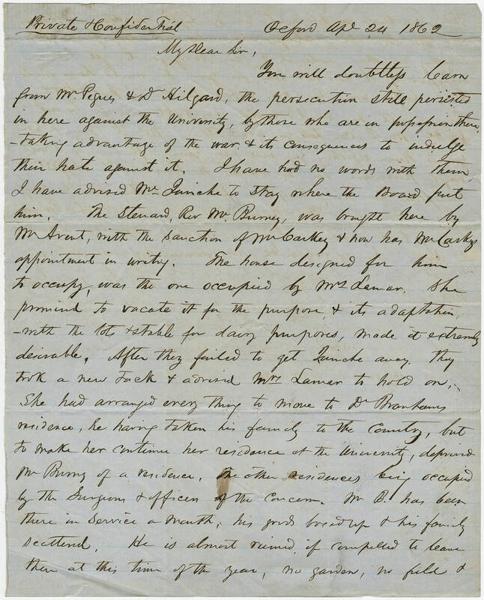 Private & Confidential
Oxford Apl 24 1862
My Dear Sir,
You will doubtless learn
from Mr Pegues & Dr Hilgard, the persecution still persisted
in here against the University, by those who are in possession there,
-taking advantage of the war & its consequences to indulge
their hate against it. I have had no words with them
I have advised Mr Quinche to stay where the Board put
him. The Steward, Rev Mr Burney, was brought here by
Mr Avent, with the sanction of McCaskey & now has McCaskeys
appointment in writing. The house designed for him
to occupy, was the one occupied by Mrs Lamar. She
promised to vacate it for the purpose & its adaptation
-with the lot & stable for dairy purposes, made it extremely
desirable. After they failed to get Quinche away they
took a new tack & advised Mrs Lamar to hold on,.
She had arranged every thing to move to Dr Branhams
residence, he having taken his family to the country, but
to make her continue her residence at the University, deprived
Mr Burney of a residence, the other residences being occupied
by the Surgeons & officers of the concern. Mr B. has been
there in service a month, his goods boxed up & his family
scattered. He is almost ruined if compelled to leave
there at this time of the year, no garden, no field &